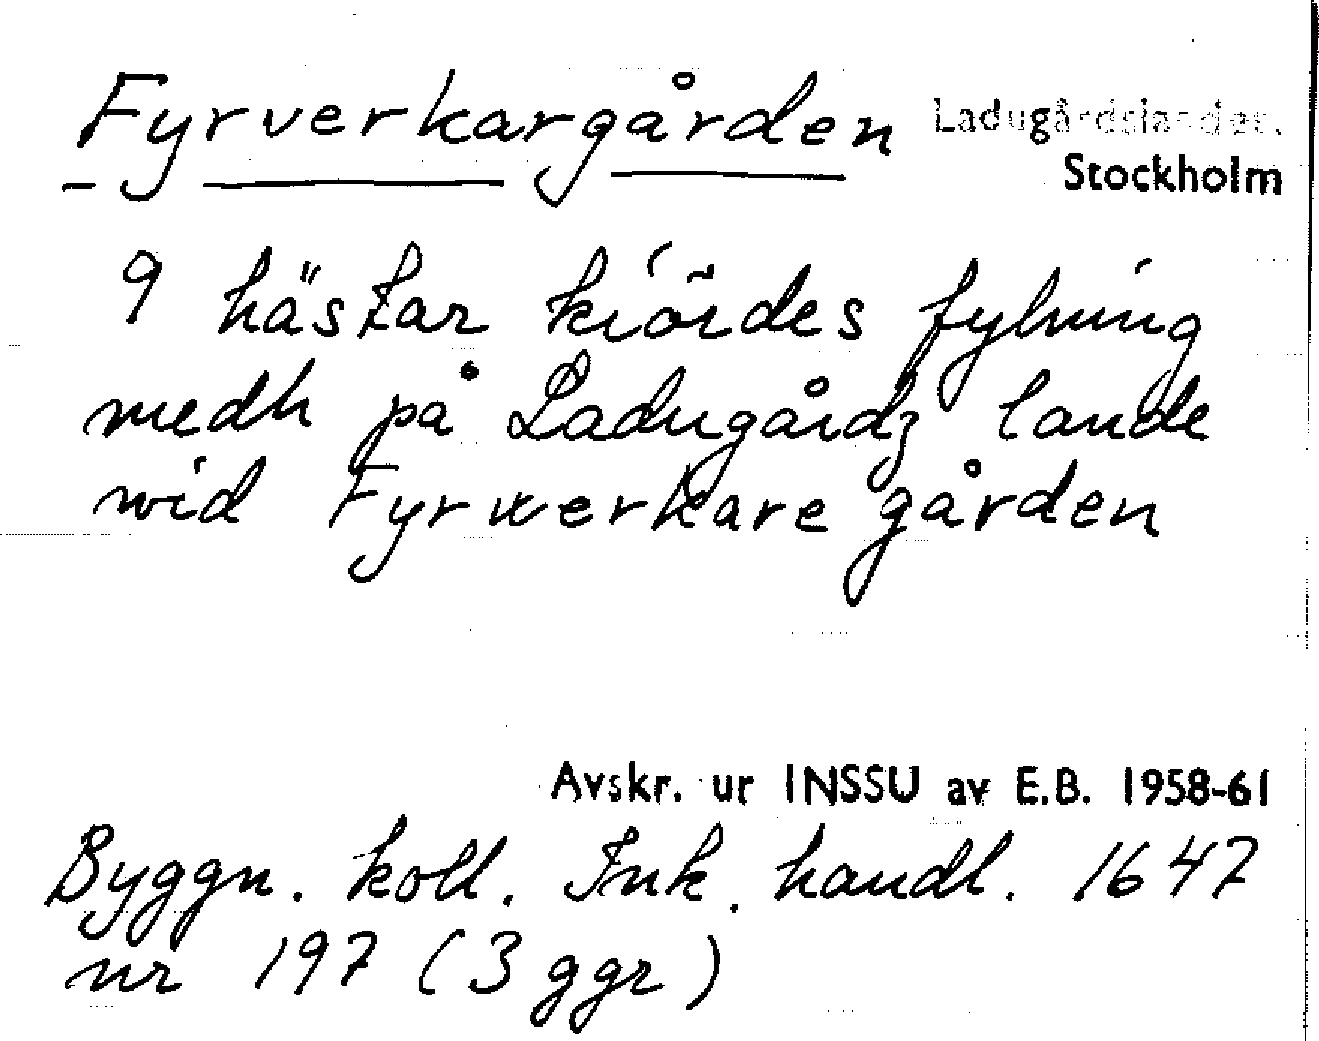 Fyrverkargården
Ladugårdslandet.
Stockholm
9 hästar kiördes fylning
medh på Ladugårdz lande
wid Fyrwerkare gården
Avskr. ur INSSU av E.B. 1958-61
Byggn. koll. Ink. handl. 1647
nr 197 (3 ggr)